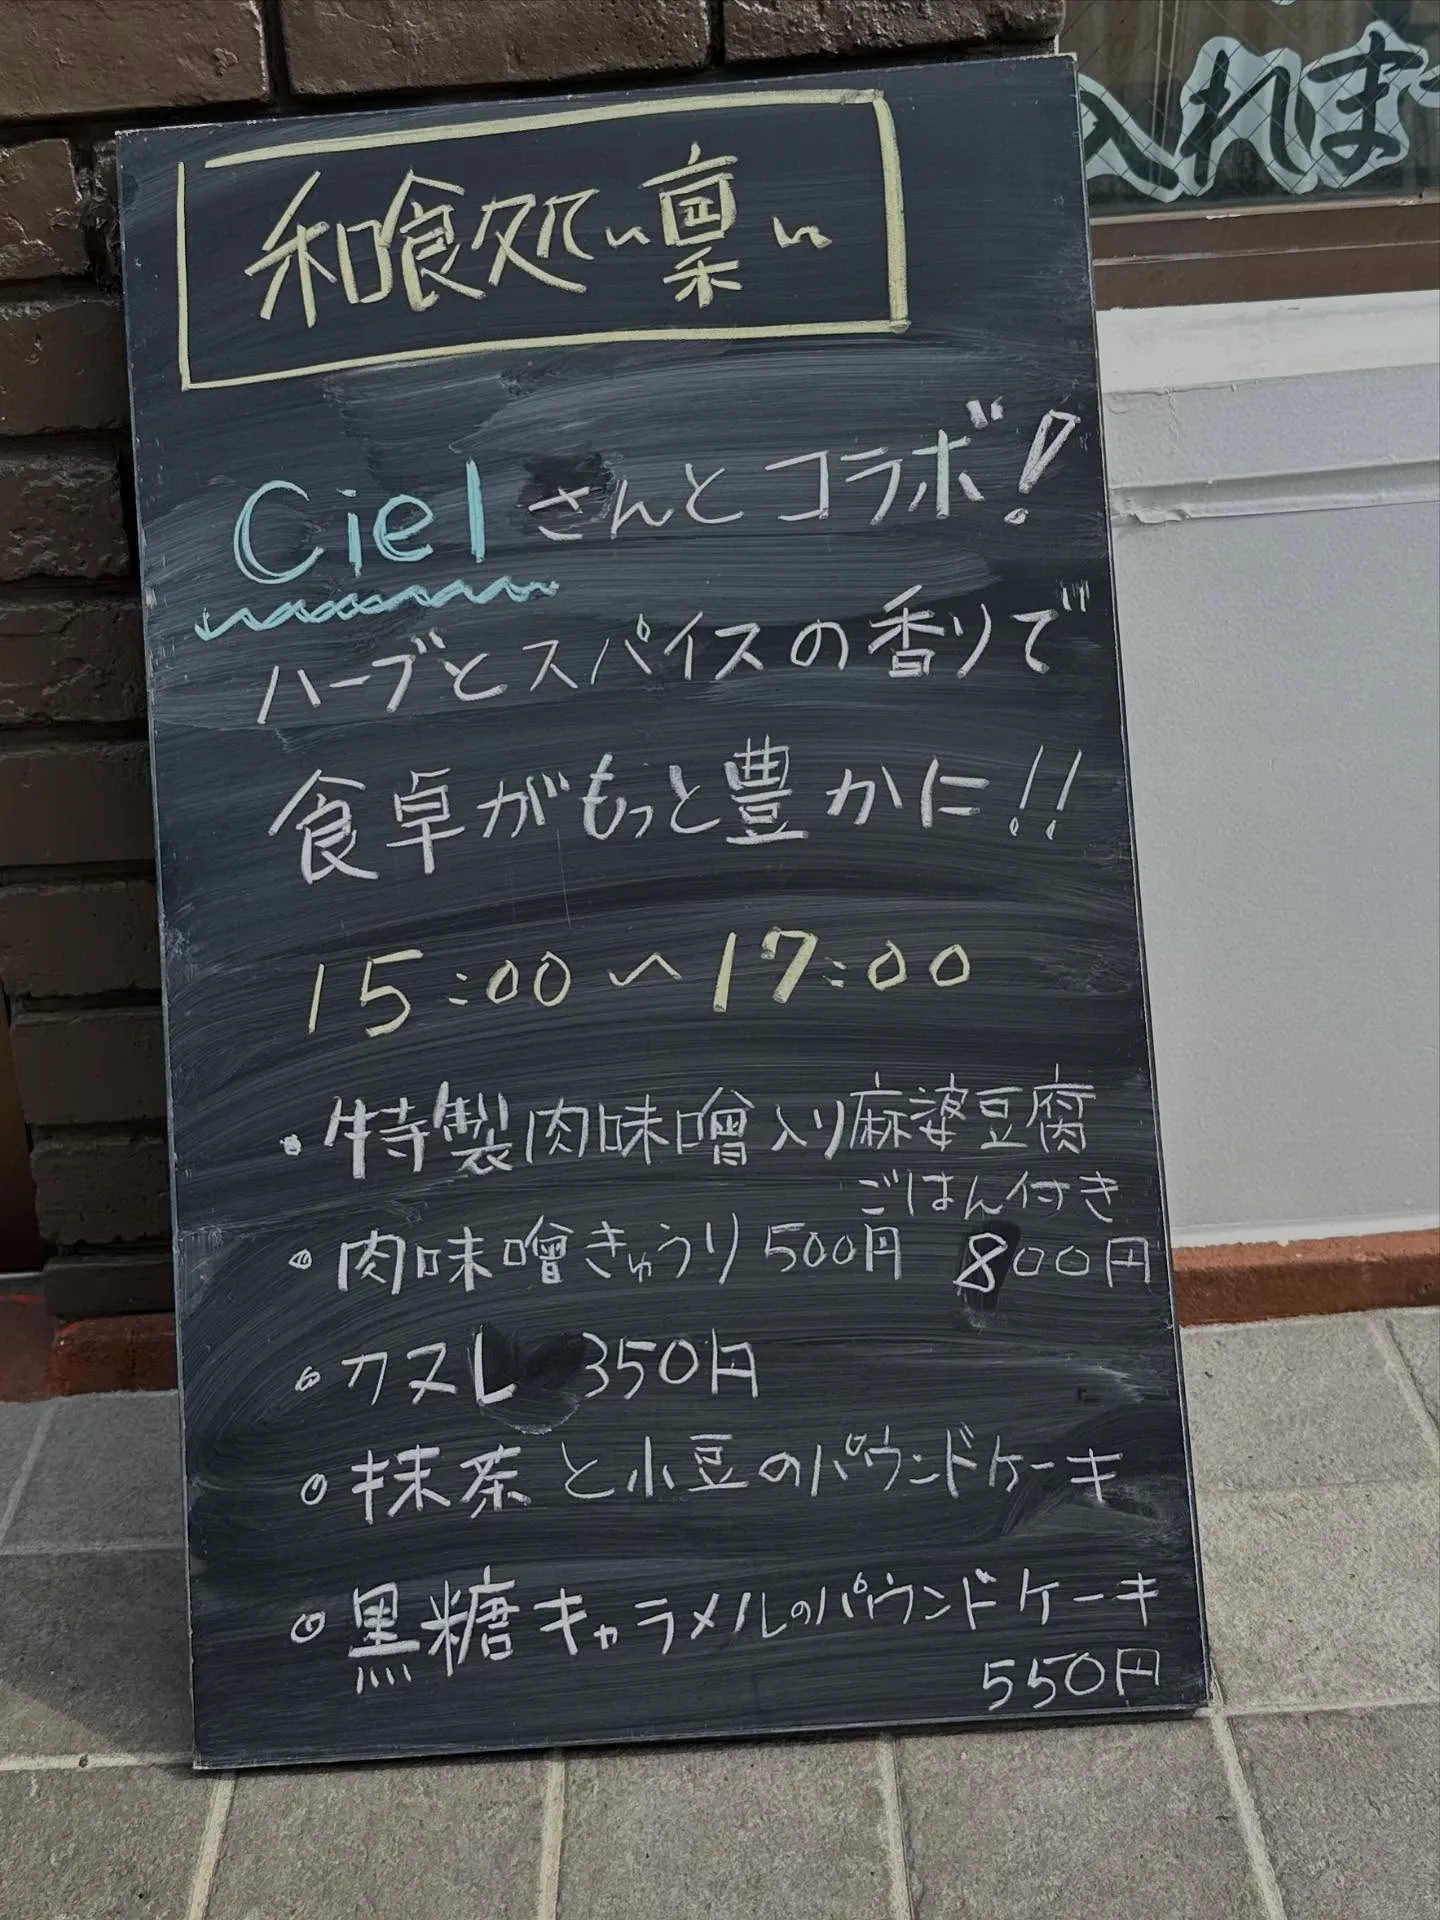 和食処〜凛〜
Cielさんとコラボ!
ハーブとスパイスの香りで
食卓がもっと豊かに!!
15:00〜17:00
・特製肉味噌入り麻婆豆腐
ごはん付き
800円
・肉味噌きゅうり 500円
・カヌレ 350円
・抹茶と小豆のパウンドケーキ
・黒糖キャラメルのパウンドケーキ
550円
入れま